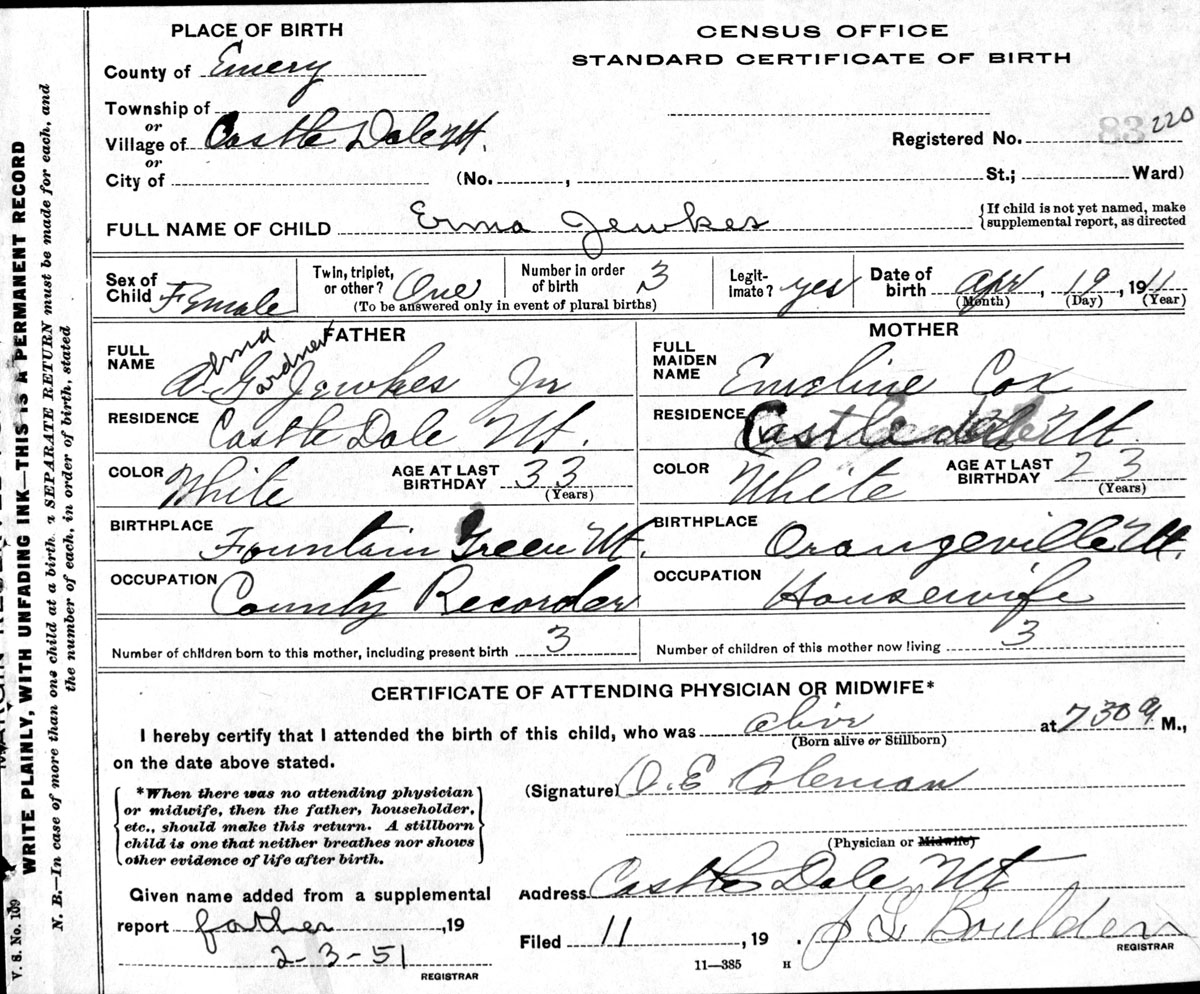 PLACE OF BIRTH
CENSUS OFFICE
STANDARD CERTIFICATE OF BIRTH
County of Emery
Township of
or
Village of Castle Dale Ut.
or
City of (No. , St.; Ward)
Registered No. 83 220
FULL NAME OF CHILD Erma Jewkes {If child is not yet named, make supplemental report, as directed
Sex of Child Female
Twin, triplet, or other? One
Number in order of birth 3
(To be answered only in event of plural births)
Legitimate? yes
Date of birth Apr, 19, 1911
(Month) (Day) (Year)
FATHER
FULL NAME A. G. Jewkes Jr
Gardner
RESIDENCE Castle Dale Ut.
COLOR White
AGE AT LAST BIRTHDAY 33
(Years)
BIRTHPLACE Fountain Green Ut.
OCCUPATION County Recorder
MOTHER
FULL MAIDEN NAME Emeline Cox
RESIDENCE Castle dale Ut.
COLOR White
AGE AT LAST BIRTHDAY 23
(Years)
BIRTHPLACE Orangeville Ut.
OCCUPATION Housewife
Number of children born to this mother, including present birth 3
Number of children of this mother now living 3
CERTIFICATE OF ATTENDING PHYSICIAN OR MIDWIFE*
I hereby certify that I attended the birth of this child, who was alive at 7 30 a M.,
(Born alive or Stillborn)
on the date above stated.
*When there was no attending physician
or midwife, then the father, householder,
etc., should make this return. A stillborn
child is one that neither breathes nor shows
other evidence of life after birth.
(Signature) O. E Coleman
(Physician or Midwife)
Given name added from a supplemental
report father, 19
2-3-51
REGISTRAR
Address Castle Dale Ut
Filed 11, 19 . J L Boulden
REGISTRAR
11—385 H
WRITE PLAINLY, WITH UNFADING INK—THIS IS A PERMANENT RECORD
N. B.—In case of more than one child at a birth, a SEPARATE RETURN must be made for each, and
the number of each, in order of birth, stated
V. S. No. 109